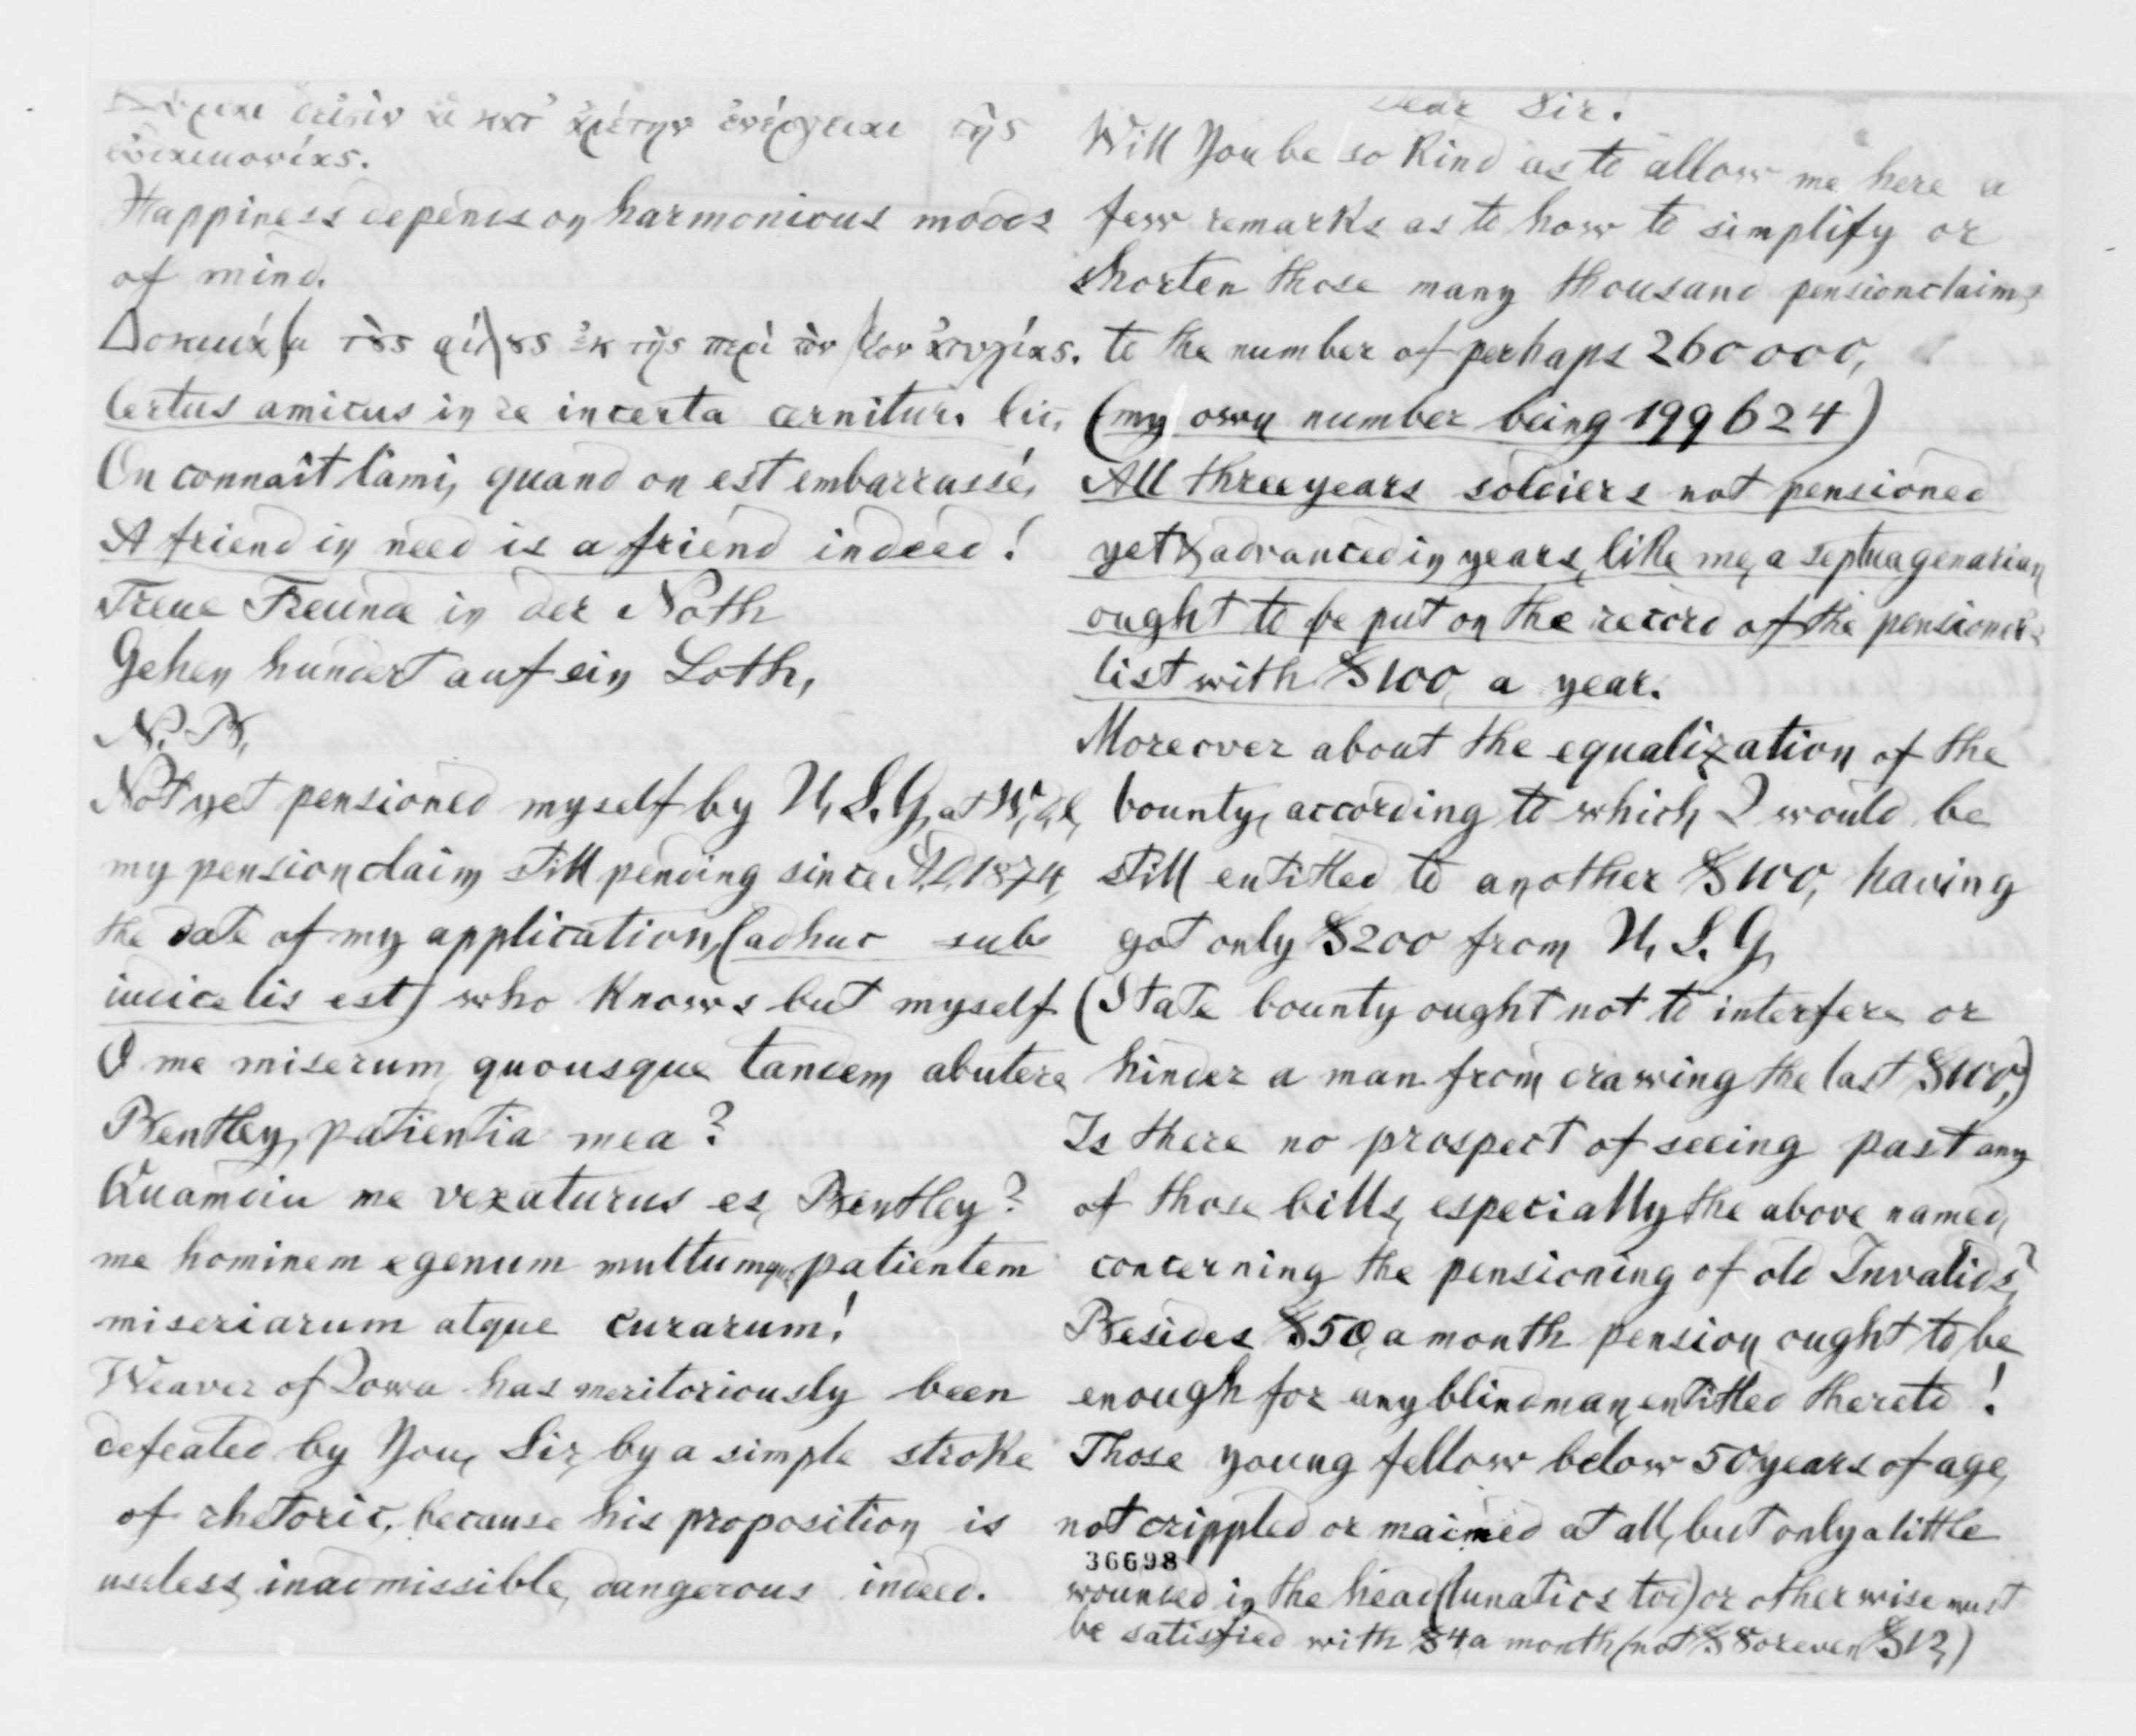 κύριαι δ' εἰσὶν αἱ κατ' ἀρέτην ἐνέργειαι τῆς
εὐδαιμονίας.
Happiness depends on harmonious moods
of mind.
Δοκιμάζε τὸς φίλος ἐκ τῆς περὶ τὸν βίον ἀτυχίας.
Certus amicus in re incerta cernitur. Cic,
On connaît l'ami, quand on est embarrassé,
A friend in need is a friend indeed!
Treue Freunde in der Noth
Gehen hundert auf ein Loth,
N. B,
Not yet pensioned myself by U, S. G, at W, D, C,
my pensionclaim still pending since A, D, 1874,
the date of my application, (adhuc sub
iudice lis est) who Knows but myself
O me miserum, quousque tandem abutere
Bentley, patientia mea?
Quamdiu me vexaturus es, Bentley?
me hominem egenum multumque patientem
miseriarum atque curarum!
Weaver of Iowa has meritoriously been
defeated by You, Sir, by a simple stroke
of rhetoric, because his proposition is
useless, inadmissible, dangerous indeed.
Dear Sir!
Will You be so Kind as to allow me here a
few remarks as to how to simplify or
shorten those many thousand pensionclaims
to the number of perhaps 260000,
(my own number being 199624)
All threeyears soldiers not pensioned
yet & advanced in years, like me, a septuagenarian
ought to be put on the record of the pensioners
list with $100, a year.
Moreover about the equalization of the
bounty, according to which I would be
still entitled to another $100, having
got only $200 from U, S. G,
(State bounty ought not to interfere or
hinder a man from drawing the last $100,)
Is there no prospect of seeing past any
of those bills, especially the above named,
concerning the pensioning of old Invalids?
Besides $50, a month pension ought to be
enough for any blindman, entitled thereto!
Those young fellow below 50 years of age,
not crippled or maimed at all, but only a little
36698
wounded in the head (lunatics too) or otherwise must
be satisfied with $4 a month (not $8 or even $12,)